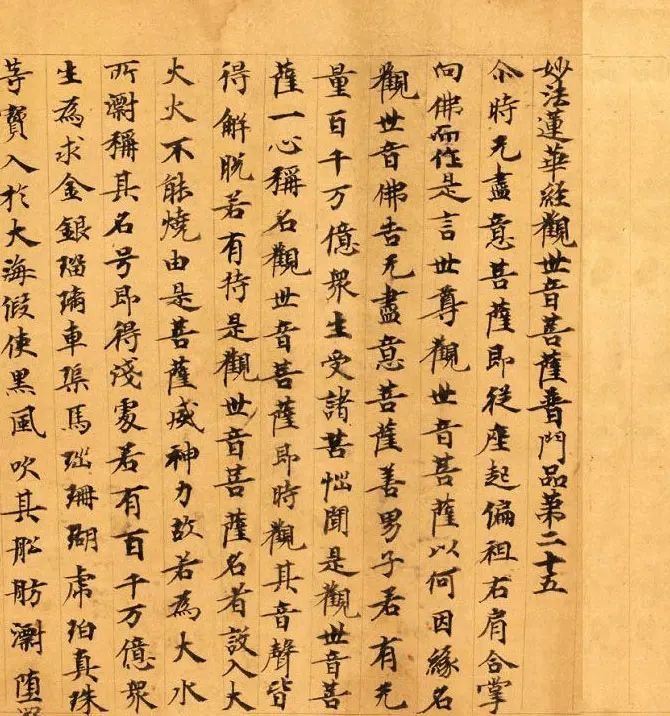 妙法蓮華經觀世音菩薩普門品第二十五
尒時无盡意菩薩即從座起偏袒右肩合掌
向佛而作是言世尊觀世音菩薩以何因緣名
觀世音佛告无盡意菩薩善男子若有无
量百千万億衆生受諸苦惱聞是觀世音菩
薩一心稱名觀世音菩薩即時觀其音聲皆
得解脫若有持是觀世音菩薩名者設入大
火火不能燒由是菩薩威神力故若為大水
所漂稱其名号即得淺處若有百千万億衆
生為求金銀瑠璃車𤦲馬瑙珊瑚虎珀真珠
等寶入於大海假使黑風吹其舩舫漂墮